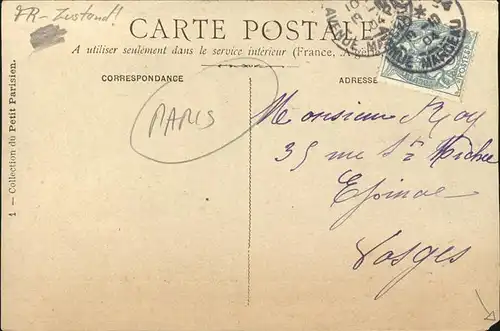 FR-Zustand!
CARTE POSTALE
A utiliser seulement dans le service intérieur (France,
CORRESPONDANCE
ADRESSE
PARIS
Monsieur
35 rue St
Epinal
Vosges
1 — Collection du Petit Parisien.
AVENUE MARCEAU
POSTES